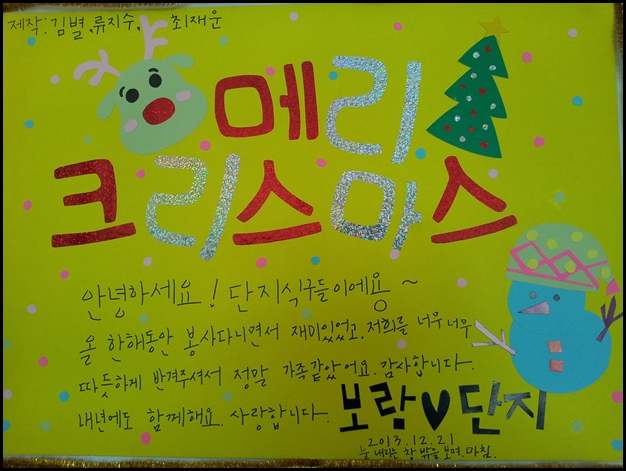 제작: 김별, 류지수, 최재운
메리
크리스마스
안녕하세요! 단지식구들이에용~
올 한해동안 봉사다니면서 재미있었고, 저희를 너무너무
따뜻하게 반겨주셔서 정말 가족같았어요. 감사합니다.
내년에도 함께해요. 사랑합니다.
보람♥단지
2013.12.21
눈 내리는 창 밖을 보며. 마침.